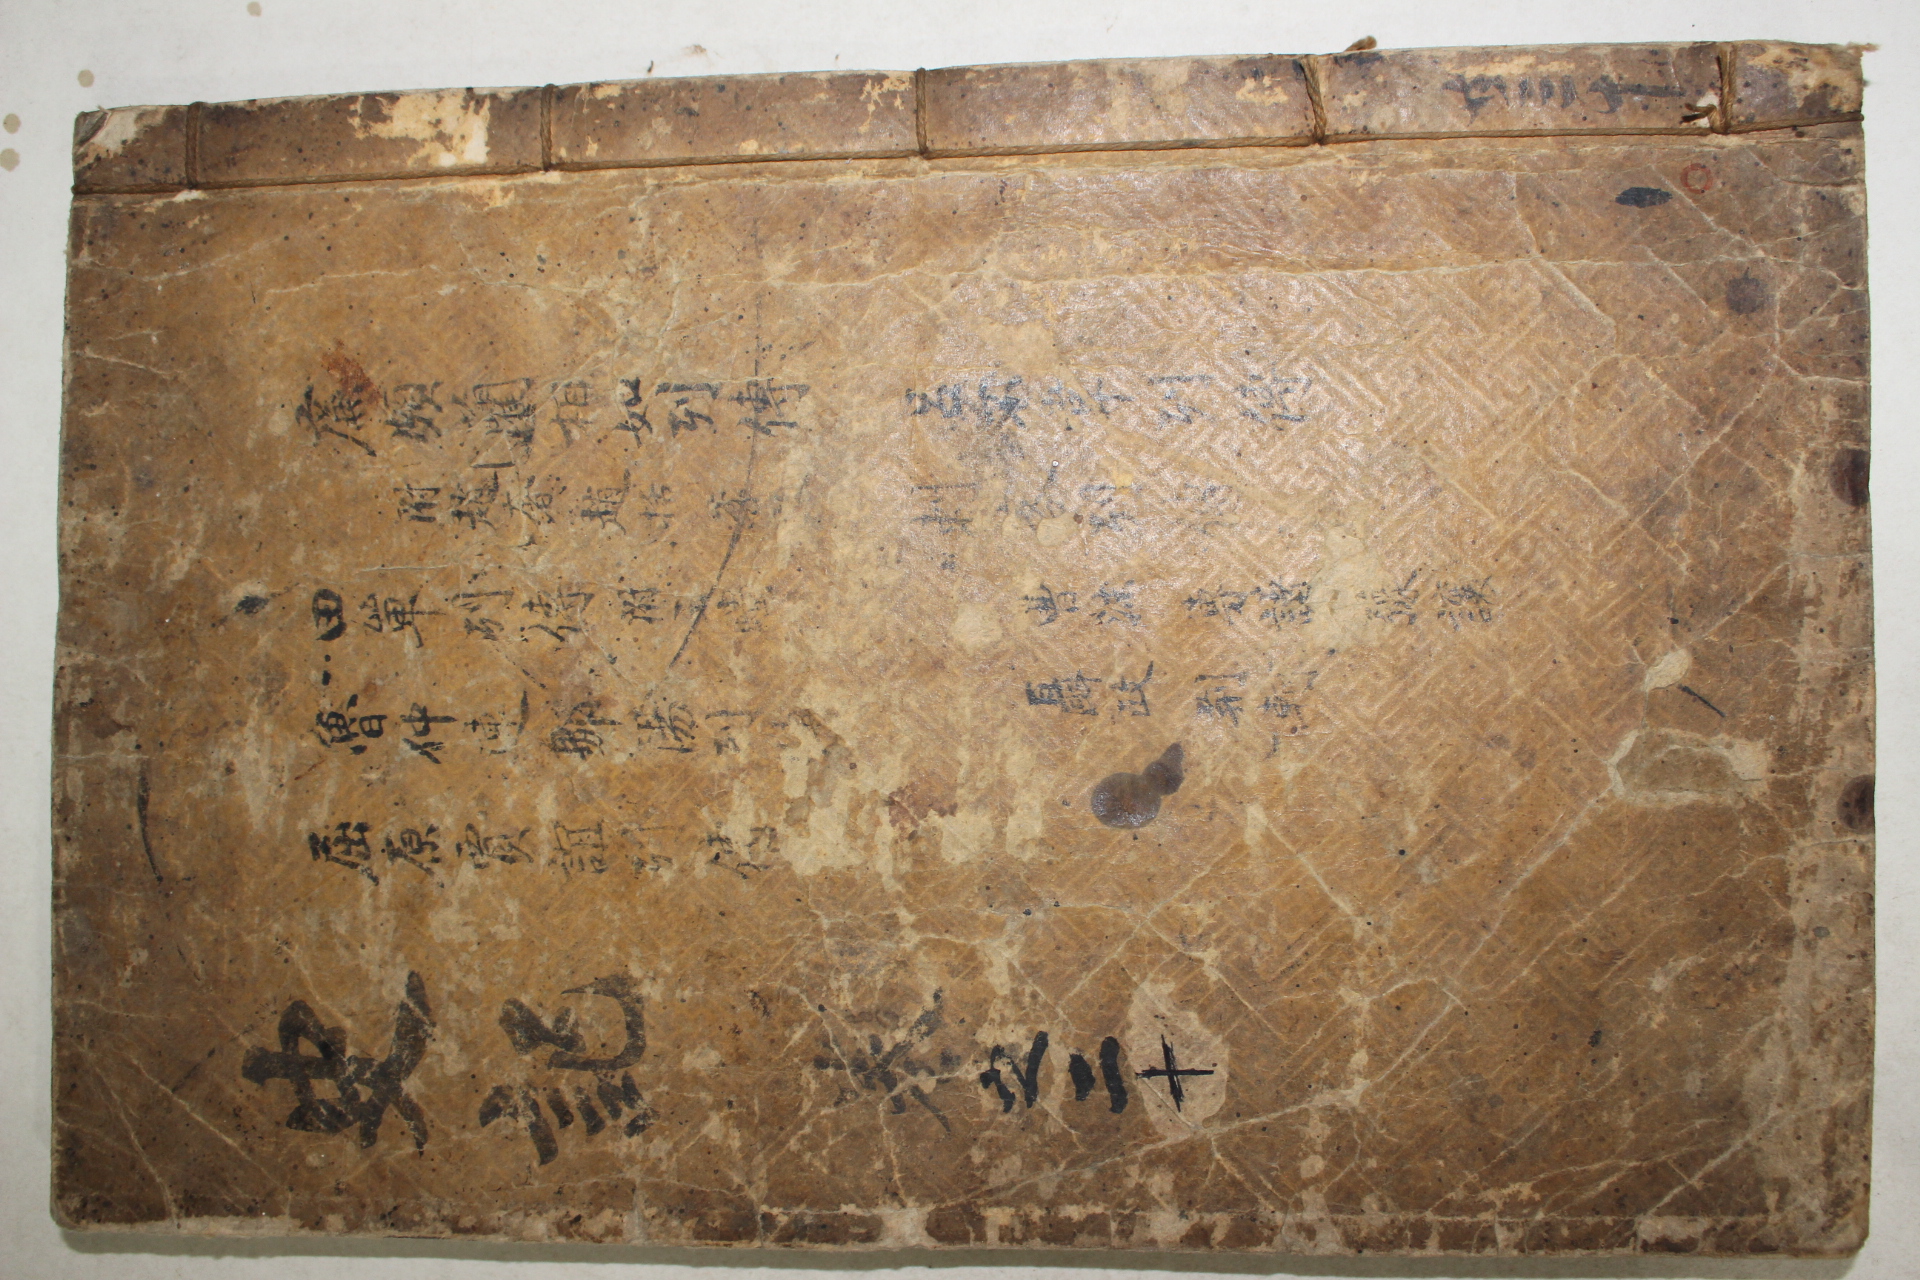 廉頗藺相如列傳
附趙奢 趙括
田單列傳附
魯仲連鄒陽列
屈原賈誼列傳
呂不韋列傳
刺客列傳
曹沫 專諸 豫讓
聶政 荊軻
史記 卷之二十